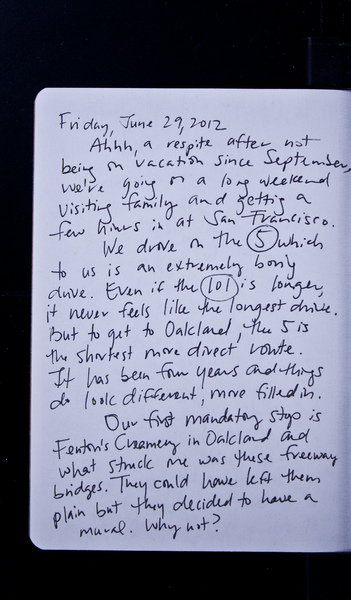 Friday, June 29, 2012
Ahhh, a respite after not
being on vacation since September,
we're going on a long weekend
visiting family and getting a
few hours in at San Francisco.
We drove on the 5 which
to us is an extremely boring
drive. Even if the 101 is longer,
it never feels like the longest drive.
But to get to Oakland, the 5 is
the shortest more direct route.
It has been four years and things
do look different, more filled in.
Our first mandatory stop is
Fenton's Creamery in Oakland and
what struck me was these freeway
bridges. They could have left them
plain but they decided to have a
mural. Why not?